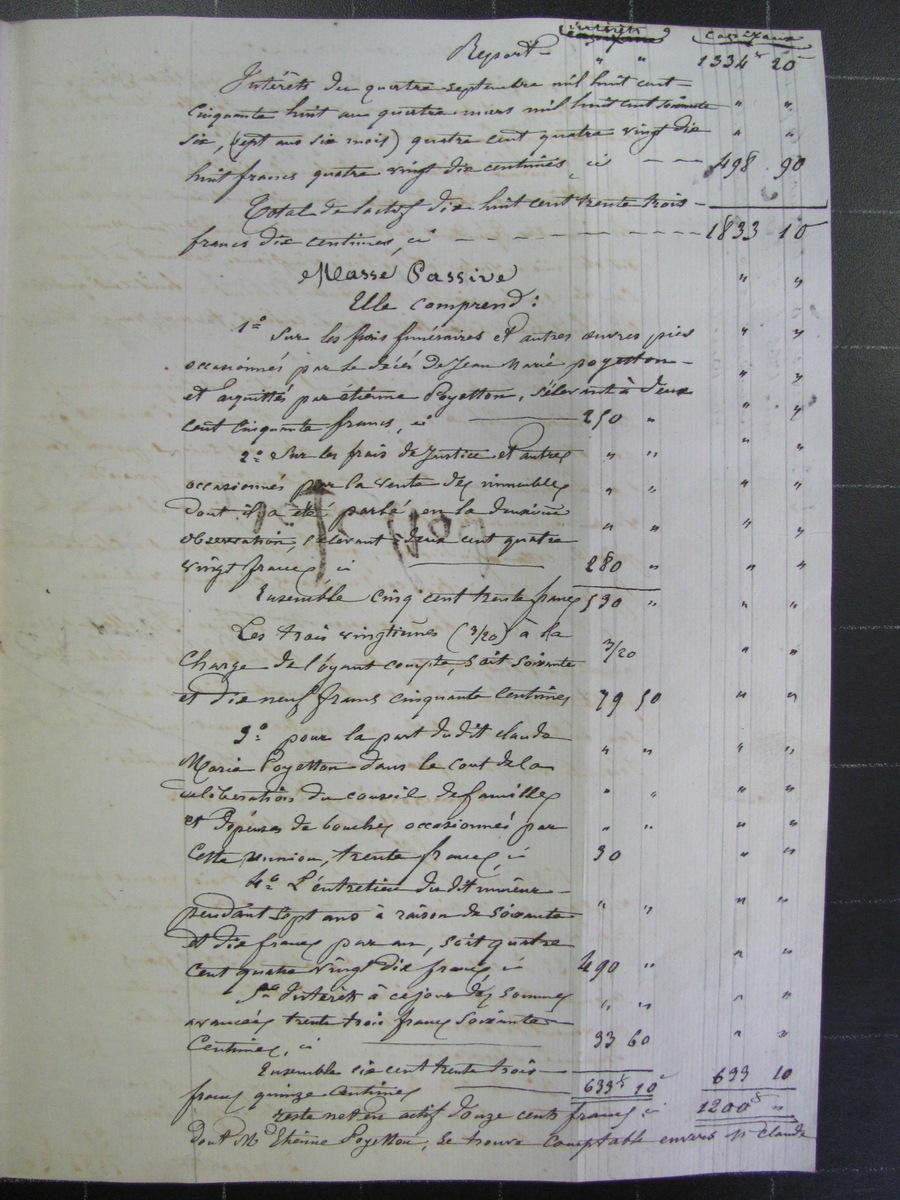 intérêts Capitaux
Report " " 1334 20
Intérêts du quatre septembre mil huit cent
cinquante huit au quatre mars mil huit cent soixante " "
six, (sept ans six mois) quatre cent quatre vingt dix " "
huit francs quatre vingt dix centimes, ci 498 90
Total de l'actif dix huit cent trente trois
francs dix centimes, ci 1833 10
Masse Passive " "
Elle comprend :
1º Sur les frais funéraires et autres œuvres pies " "
occasionnés par le décés de Jean Marie poyetton " "
et acquittés par étienne Poyetton, s'élevant à deux
cent cinquante francs, ci 250 " " "
2º Sur les frais de Justice et autres " " " "
occasionnés par la vente des immeubles " " " "
dont il a été parlé en la
observation, s'élevant à deux cent quatre " " " "
vingt francs ci 280 " " "
Ensemble cinq cent trente francs 530 " " "
Les trois vingtièmes (3/20) à la
charge de l'oyant compte, soit soixante 3/20 " "
et dix neuf francs cinquante centimes 79 50 " "
3º pour la part dudit claude
Marie Poyetton dans le cout de la " " " "
déliberations du conseil de famille " " " "
et dépenses de bouches occasionnés par " " " "
cette reunion, trente francs, ci 30 " "
4º L'entretien du dit mineur
pendant sept ans à raison de soixante " " " "
et dix francs par an, soit quatre
cent quatre vingt dix francs ci 490 " " "
5º Intérêts à ce jour des sommes " " " "
avancées trente trois francs soixante
Centimes, ci 33 60 " "
Ensemble six cent trente trois
francs quinze centimes 633 10 633 10
reste net en actif douze cents francs ci 1200 "
dont M. Etienne Poyetton, se trouve comptable envers claude